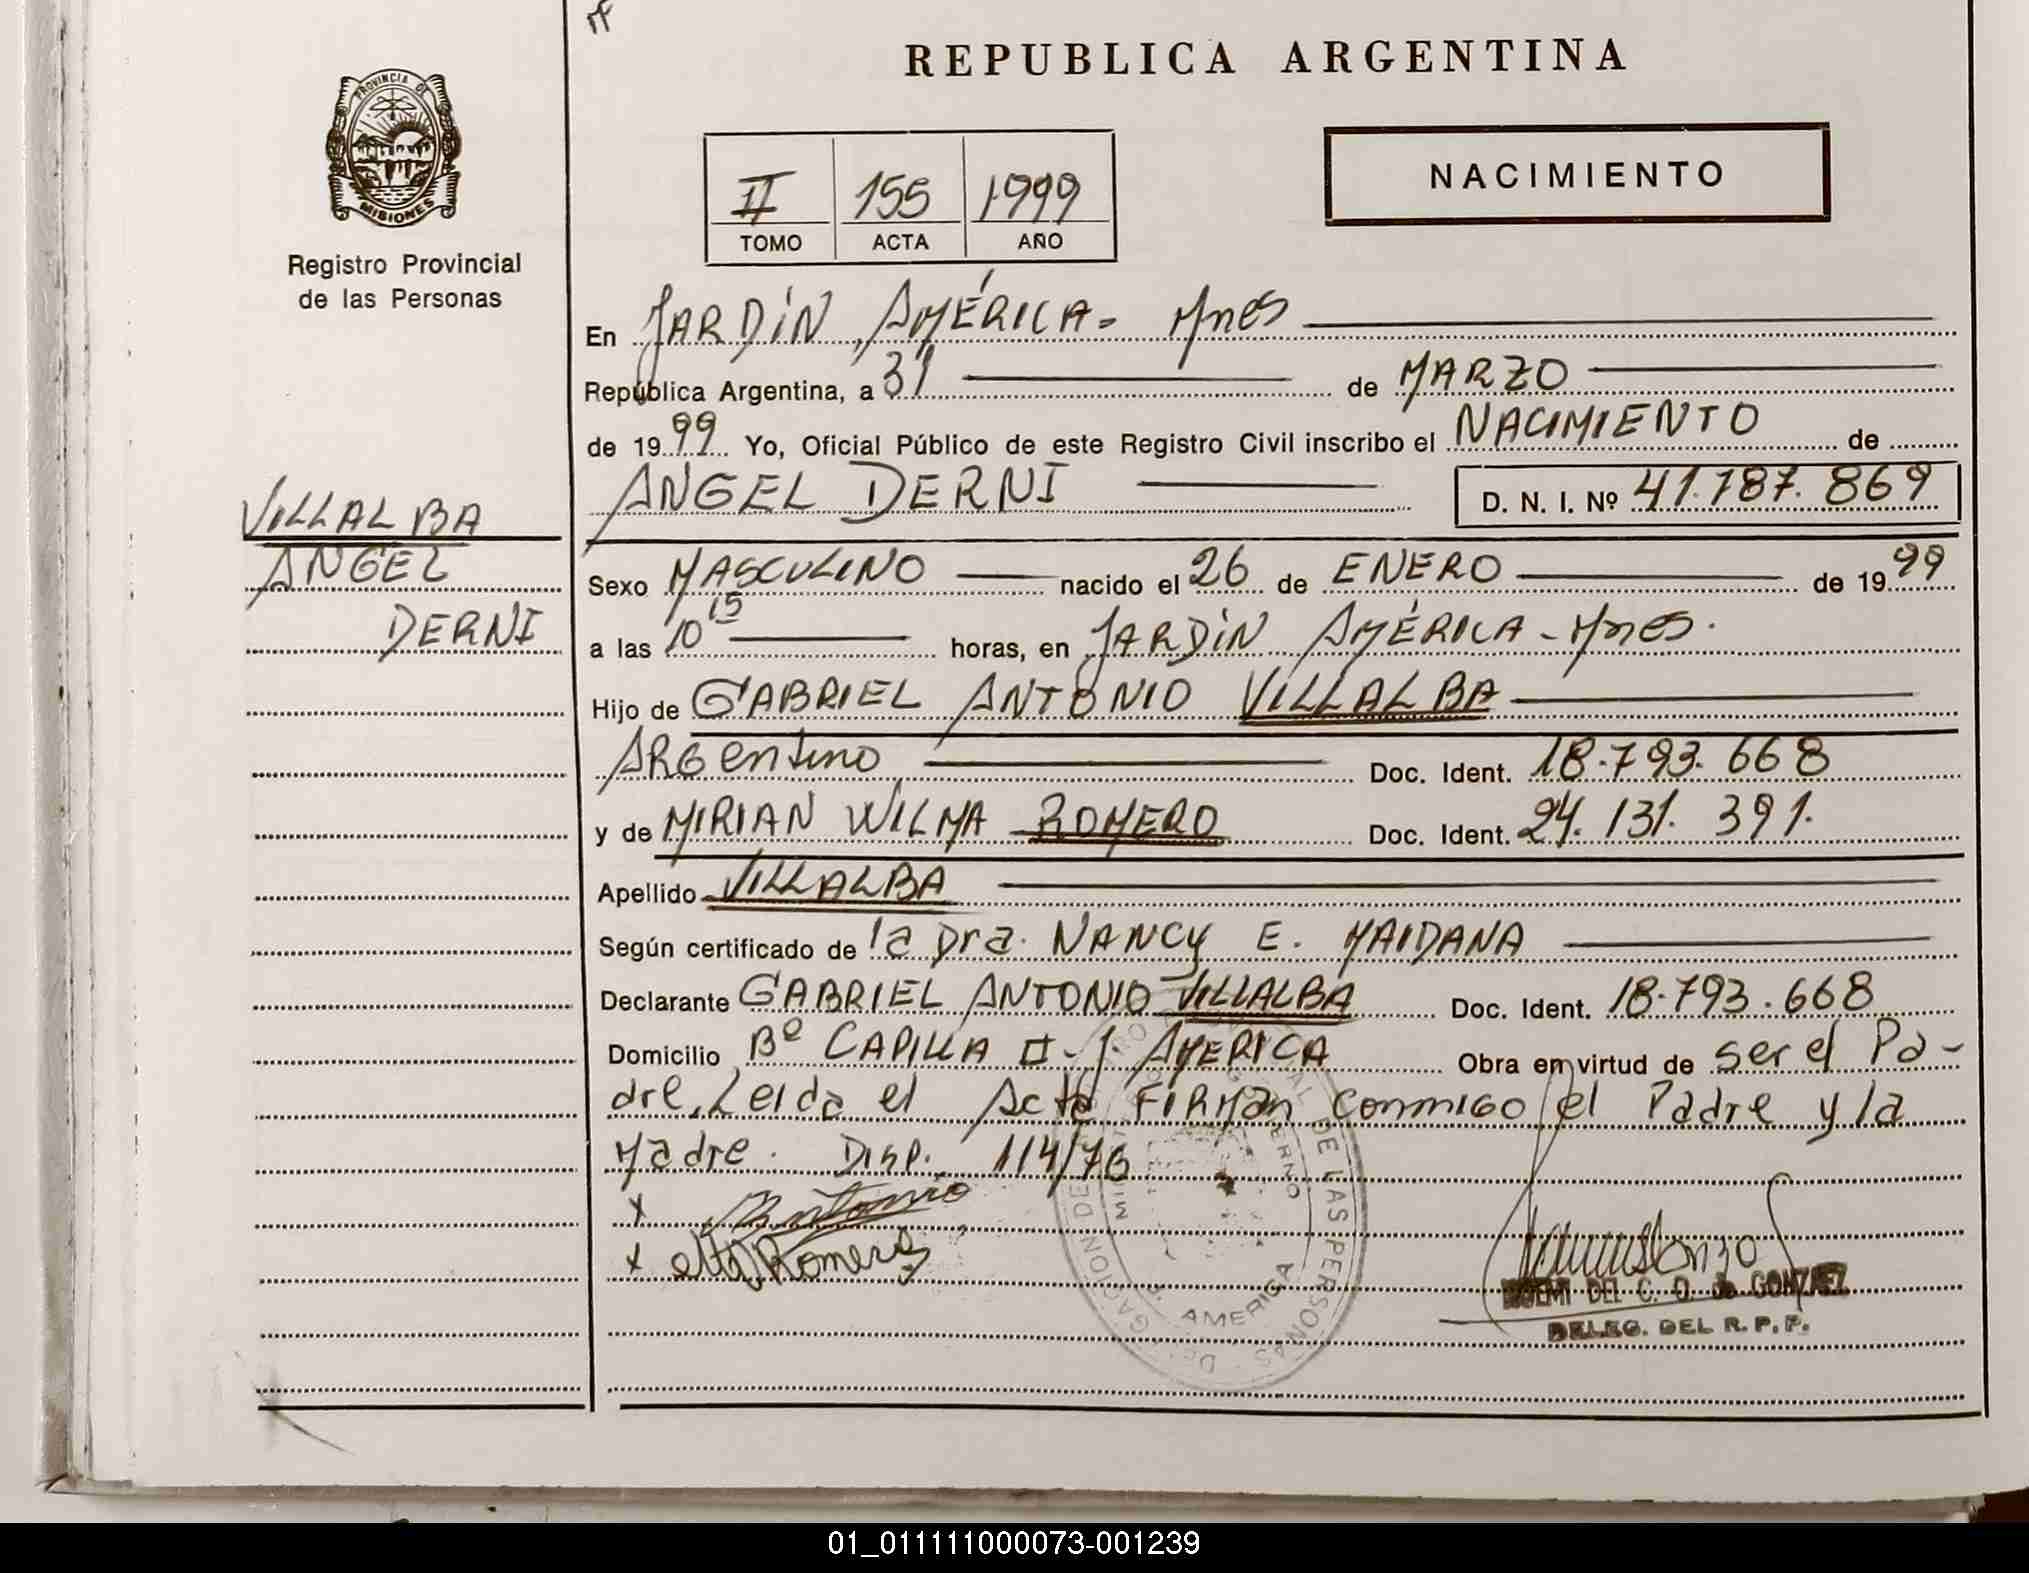 REPUBLICA ARGENTINA
PROVINCIA DE
MISIONES
Registro Provincial
de las Personas
NACIMIENTO
II 155 1999
TOMO ACTA AÑO
En JARDÍN AMÉRICA - Mnes
República Argentina, a 31 de MARZO
de 1999 Yo, Oficial Público de este Registro Civil inscribo el NACIMIENTO de
ANGEL DERNI D. N. I. Nº 41.787.869
VILLALBA
ANGEL
DERNI
Sexo MASCULINO nacido el 26 de ENERO de 1999
a las 10 15 horas, en JARDÍN AMÉRICA - Mnes.
Hijo de GABRIEL ANTONIO VILLALBA
ARGentino Doc. Ident. 18.793.668
y de MIRIAN WILMA ROMERO Doc. Ident. 24.131.391.
Apellido VILLALBA
Según certificado de la Dra. NANCY E. MAIDANA
Declarante GABRIEL ANTONIO VILLALBA Doc. Ident. 18.793.668
Domicilio Bº CAPILLA - J. AMERICA Obra en virtud de ser el Pa-
dre. Leida el Acta FIRMan conmigo el Padre y la
Madre. Disp. 114/76
x Antonio
x Romero
DEL C. O. de GONZALEZ
DELEG. DEL R. P. P.
DE LAS PERSONAS
AMERICA
01_011111000073-001239